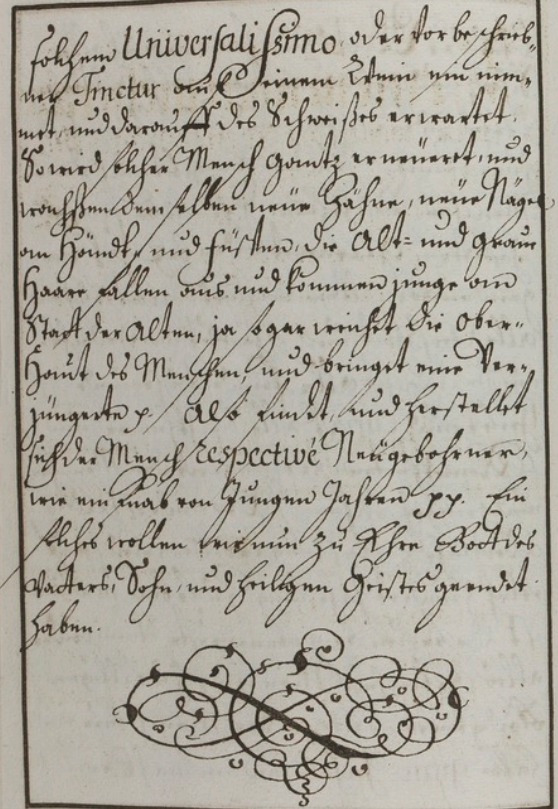 solchem Universalissimo, oder vorbeschrieb-
ner Tinctur aus einem Wein ein nim-
met, und darauff des Schweißes erwartet.
So wird solcher Mensch gantz erneüeret, und
wachßen dem selben neüe Zähne, neüe Nägel
an Händt, und füssen, die Alt- und graue
Haare fallen aus und kommen junge an
Statt der Alten, ja sogar weichet die ober-
Haut des Menschen, und bringet eine Ver-
jüngerte p. Also findt, und herstellet
sich der Mensch respectivè Neügebohrner,
wie ein Knab von Jungen Jahren pp. Ein
solches wollen wir nun zu Ehre Gott des
Vatters, Sohn, und heiligen Geistes geendet
haben.